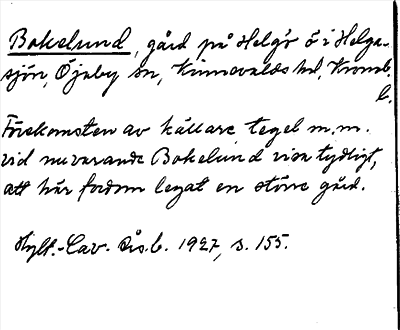 Bokelund, gård på Helgö ö i Helga-
sjön, Öjaby sn, Kinnevalds hd, Kronob.
l.
Förekomsten av källare, tegel m.m.
vid nuvarande Bokelund visa tydligt,
att här fordom legat en större gård.
Hylt.-Cav. Års.b. 1927, s. 155.